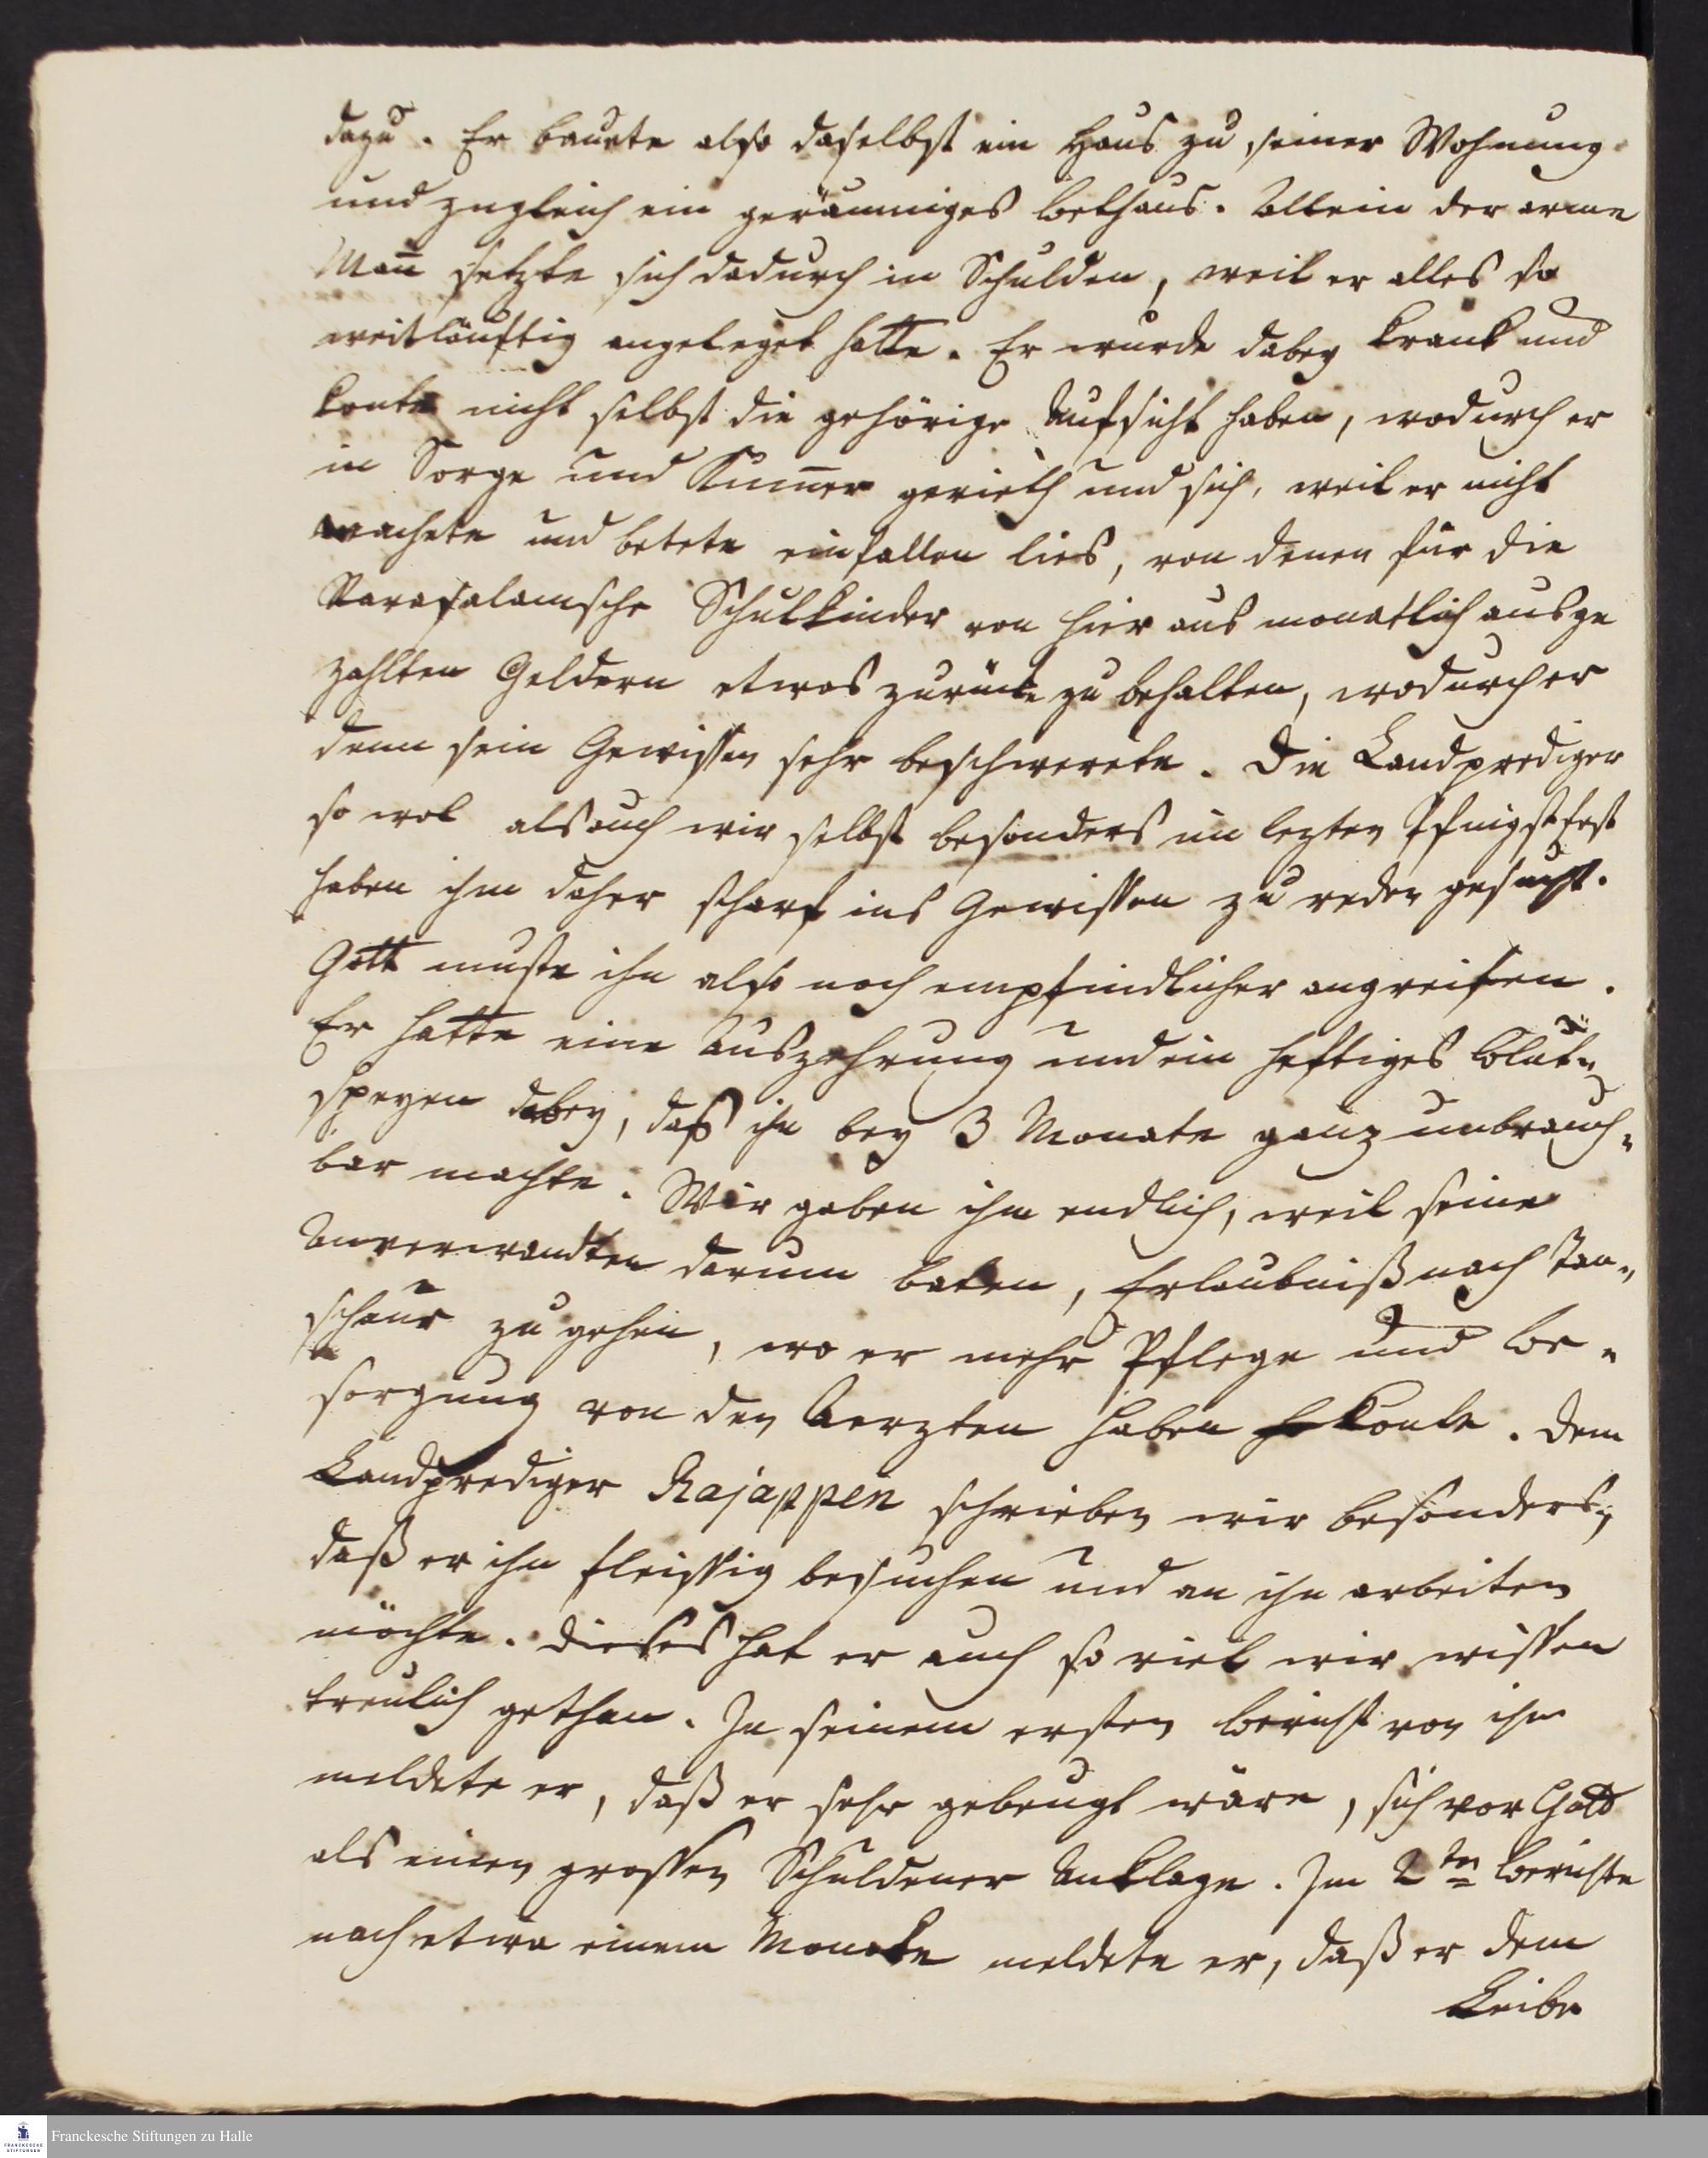 dazu. Er bauete also daselbst ein Haus zu seiner Wohnung
und zugleich ein geräumiges Bethaus. Allein der arme
Mañ setzte sich dadurch in Schulden, weil er alles so
weitläuftig angeleget hatte. Er wurde dabey kranck und
konte nicht selbst die gehörige Aufsicht haben, wodurch er
in Sorge und Kum̄er gerieth und sich, weil er nicht
wachete und betete einfallen lies, von denen für die
Schulkinder von hier aus monatlich ausge
zahlten Geldern etwas zurücke zu behalten, wodurch er
denn sein Gewissen sehr beschwerete. Die Landprediger
so wol als auch wir selbst besonders im lezten Pfingstfest
haben ihm daher scharf ins Gewissen zu reden gesucht.
Gott muste ihn also noch empfindlicher angreifen.
Er hatte eine Auszehrung und ein heftiges Blut-
speyen dabey, daß ihn bey 3 Monate ganz unbrauch-
bar machte. Wir gaben ihm endlich, weil seine
Anverwandten darum baten, Erlaubniß nach Tan-
schaur zu gehen, wo er mehr Pflege und Be-
sorgung von den Aerzten haben konte. Dem
Landprediger Rajappen schrieben wir besonders,
daß er ihn fleissig besuchen und an ihn arbeiten
möchte. Dieses hat er auch so viel wir wissen
treulich gethan. In seinem ersten Bericht von ihm
meldete er, daß er sehr gebeugt wäre, sich vor Gott
als einen grossen Schuldener Anklage. Im 2ten Berichte
nach etwa einem Monate meldete er, daß er dem
Leibe
Franckesche Stiftungen zu Halle